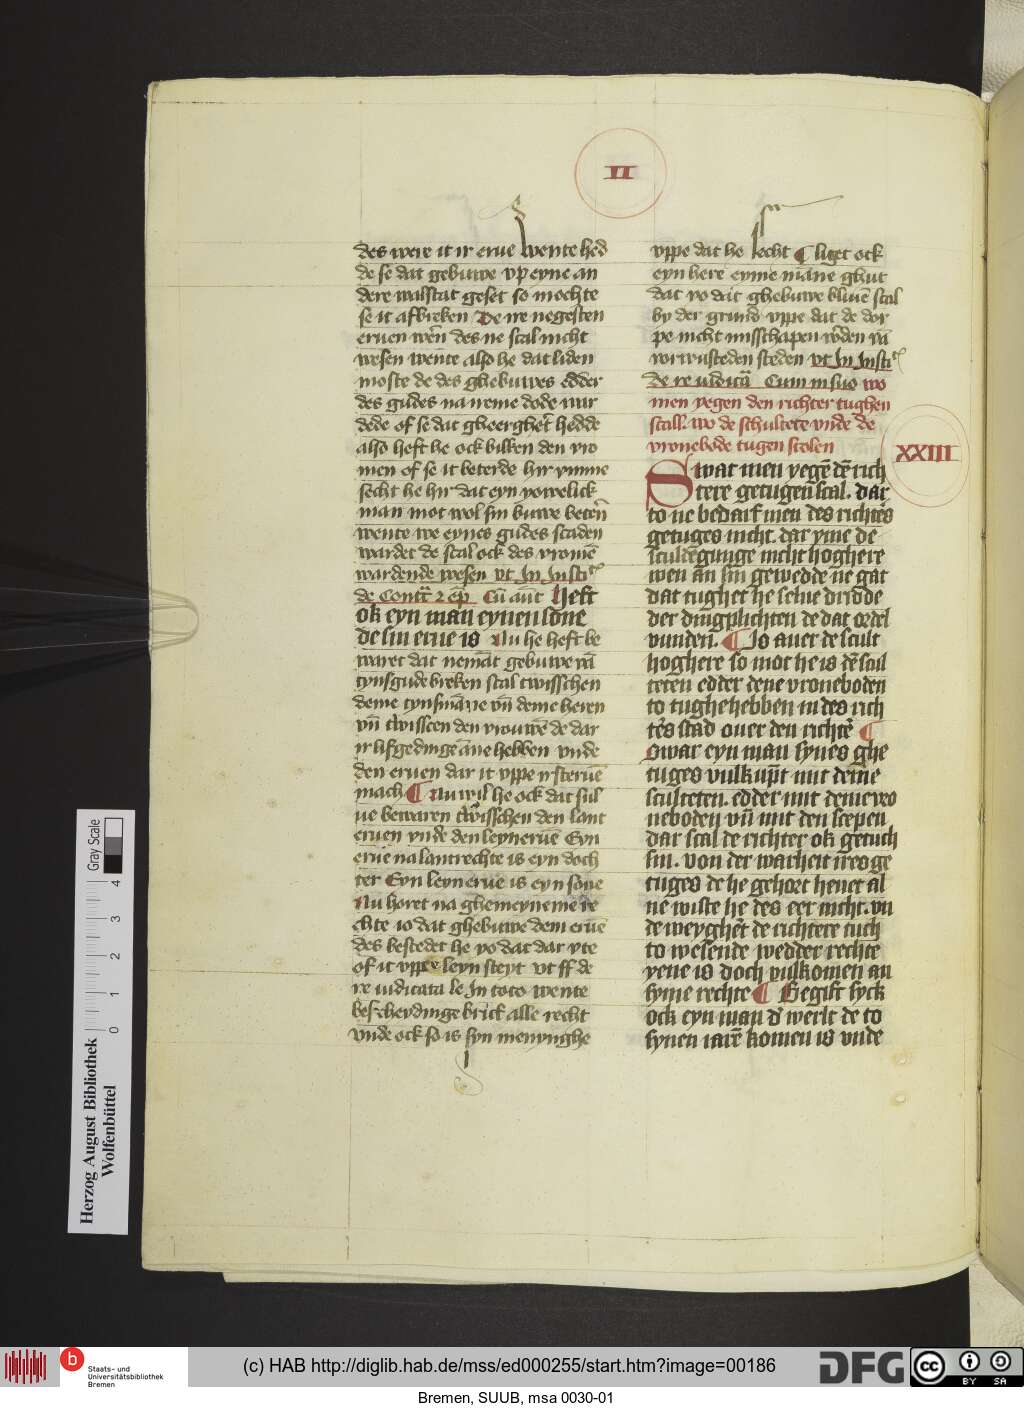 II
des were it ir erue wente hed
de se dat gebuwe vp eyne an
dere walstat geset so mochte
se it afbreken De ne negesten
eruen wēn des ne scal nicht
wesen wente also he dat liden
moste de des ghebuwes edder
des gudes na neme dode war
dede of se dat gheerghet hedde
also heft he ock billken den vro
men of se it beterde hir ymme
secht he hir dat eyn yowelick
man mot wol sin buwe betern
wente we eynes gudes scaden
wardet de scal ock des vromē
wardende wesen vt In Insti
de Contr̄ 2 ep Cū aut Heft
ok eyn man eynen sone
de sin erue is Nu he heft be
waret dat nemāt gebuwe vā
tynsgude breken scal twisschen
deme tynsmāne vn̄ deme heren
vn̄ twisscen den vrouwē de dar
ir lifgedinge āne hebben vnde
den eruen dar it vppe ir steruē
mach ¶ Nu wil he ock dat sul
ue bewaren twisschen den lant
eruen vnde den leyneruē Eyn
erue na lantrechte is eyn doch
ter Eyn leyn erue is eyn sone
Nu horet na ghemeyneme re
chte io dat ghebuwe dem eruē
des bestedet he yo dat dar vte
of it vppe leyn steyt vt ff de
re iudicata le In toto wente
bescheydinge brict alle recht
vnde ock so is syn menynghe
vppe dat he secht ¶ liget ock
eyn here eyme māne ghut
dat yo dat ghebuwe bliuē scal
by der grund vppe dat de dor
pe nicht misschapen wōden vā
vorwusteden steden vt In Insti
de re iudicā Cum in suo wo
men yegen den richter tughen
scall. wo de schultete vnde de
vronebode tugen scolen
XXIII
Swat men yegē dē rich
tere getugen scal. dar
to ne bedarf men des richtēs
getuges nicht. dar yme de
sculdegunge nicht hoghere
wen an sin gewedde ne gat
dat tughet he selue dridde
der dingplichten de dat ordel
vunden. ¶ Is auer de scult
hoghere so mot he is dē scul
teten edder dene vroneboden
to tughe hebben in des rich
tēs stad ouer den richtē ¶
Swar eyn man synes ghe
tuges vulkūpt mit deme
sculteten. edder mit deme vro
neboden vn̄ mit den scepen
dar scal de richter ok getuch
sin. von der warheit ires ge
tuges de he gehoret heuet al
ne wiste he des eer nicht. vn
de weyghēt de richtere tuch
to wesende wedder rechte
yene is doch vulkomen an
syme rechte ¶ Begift syck
ock eyn man d' werlt de to
synen iarē komen is vnde
Gray Scale
0 1 2 3 4
Herzog August Bibliothek
Wolfenbüttel
b
Staats- und
Universitätsbibliothek
Bremen
(c) HAB http://diglib.hab.de/mss/ed000255/start.htm?image=00186
DFG
cc
BY SA
Bremen, SUUB, msa 0030-01